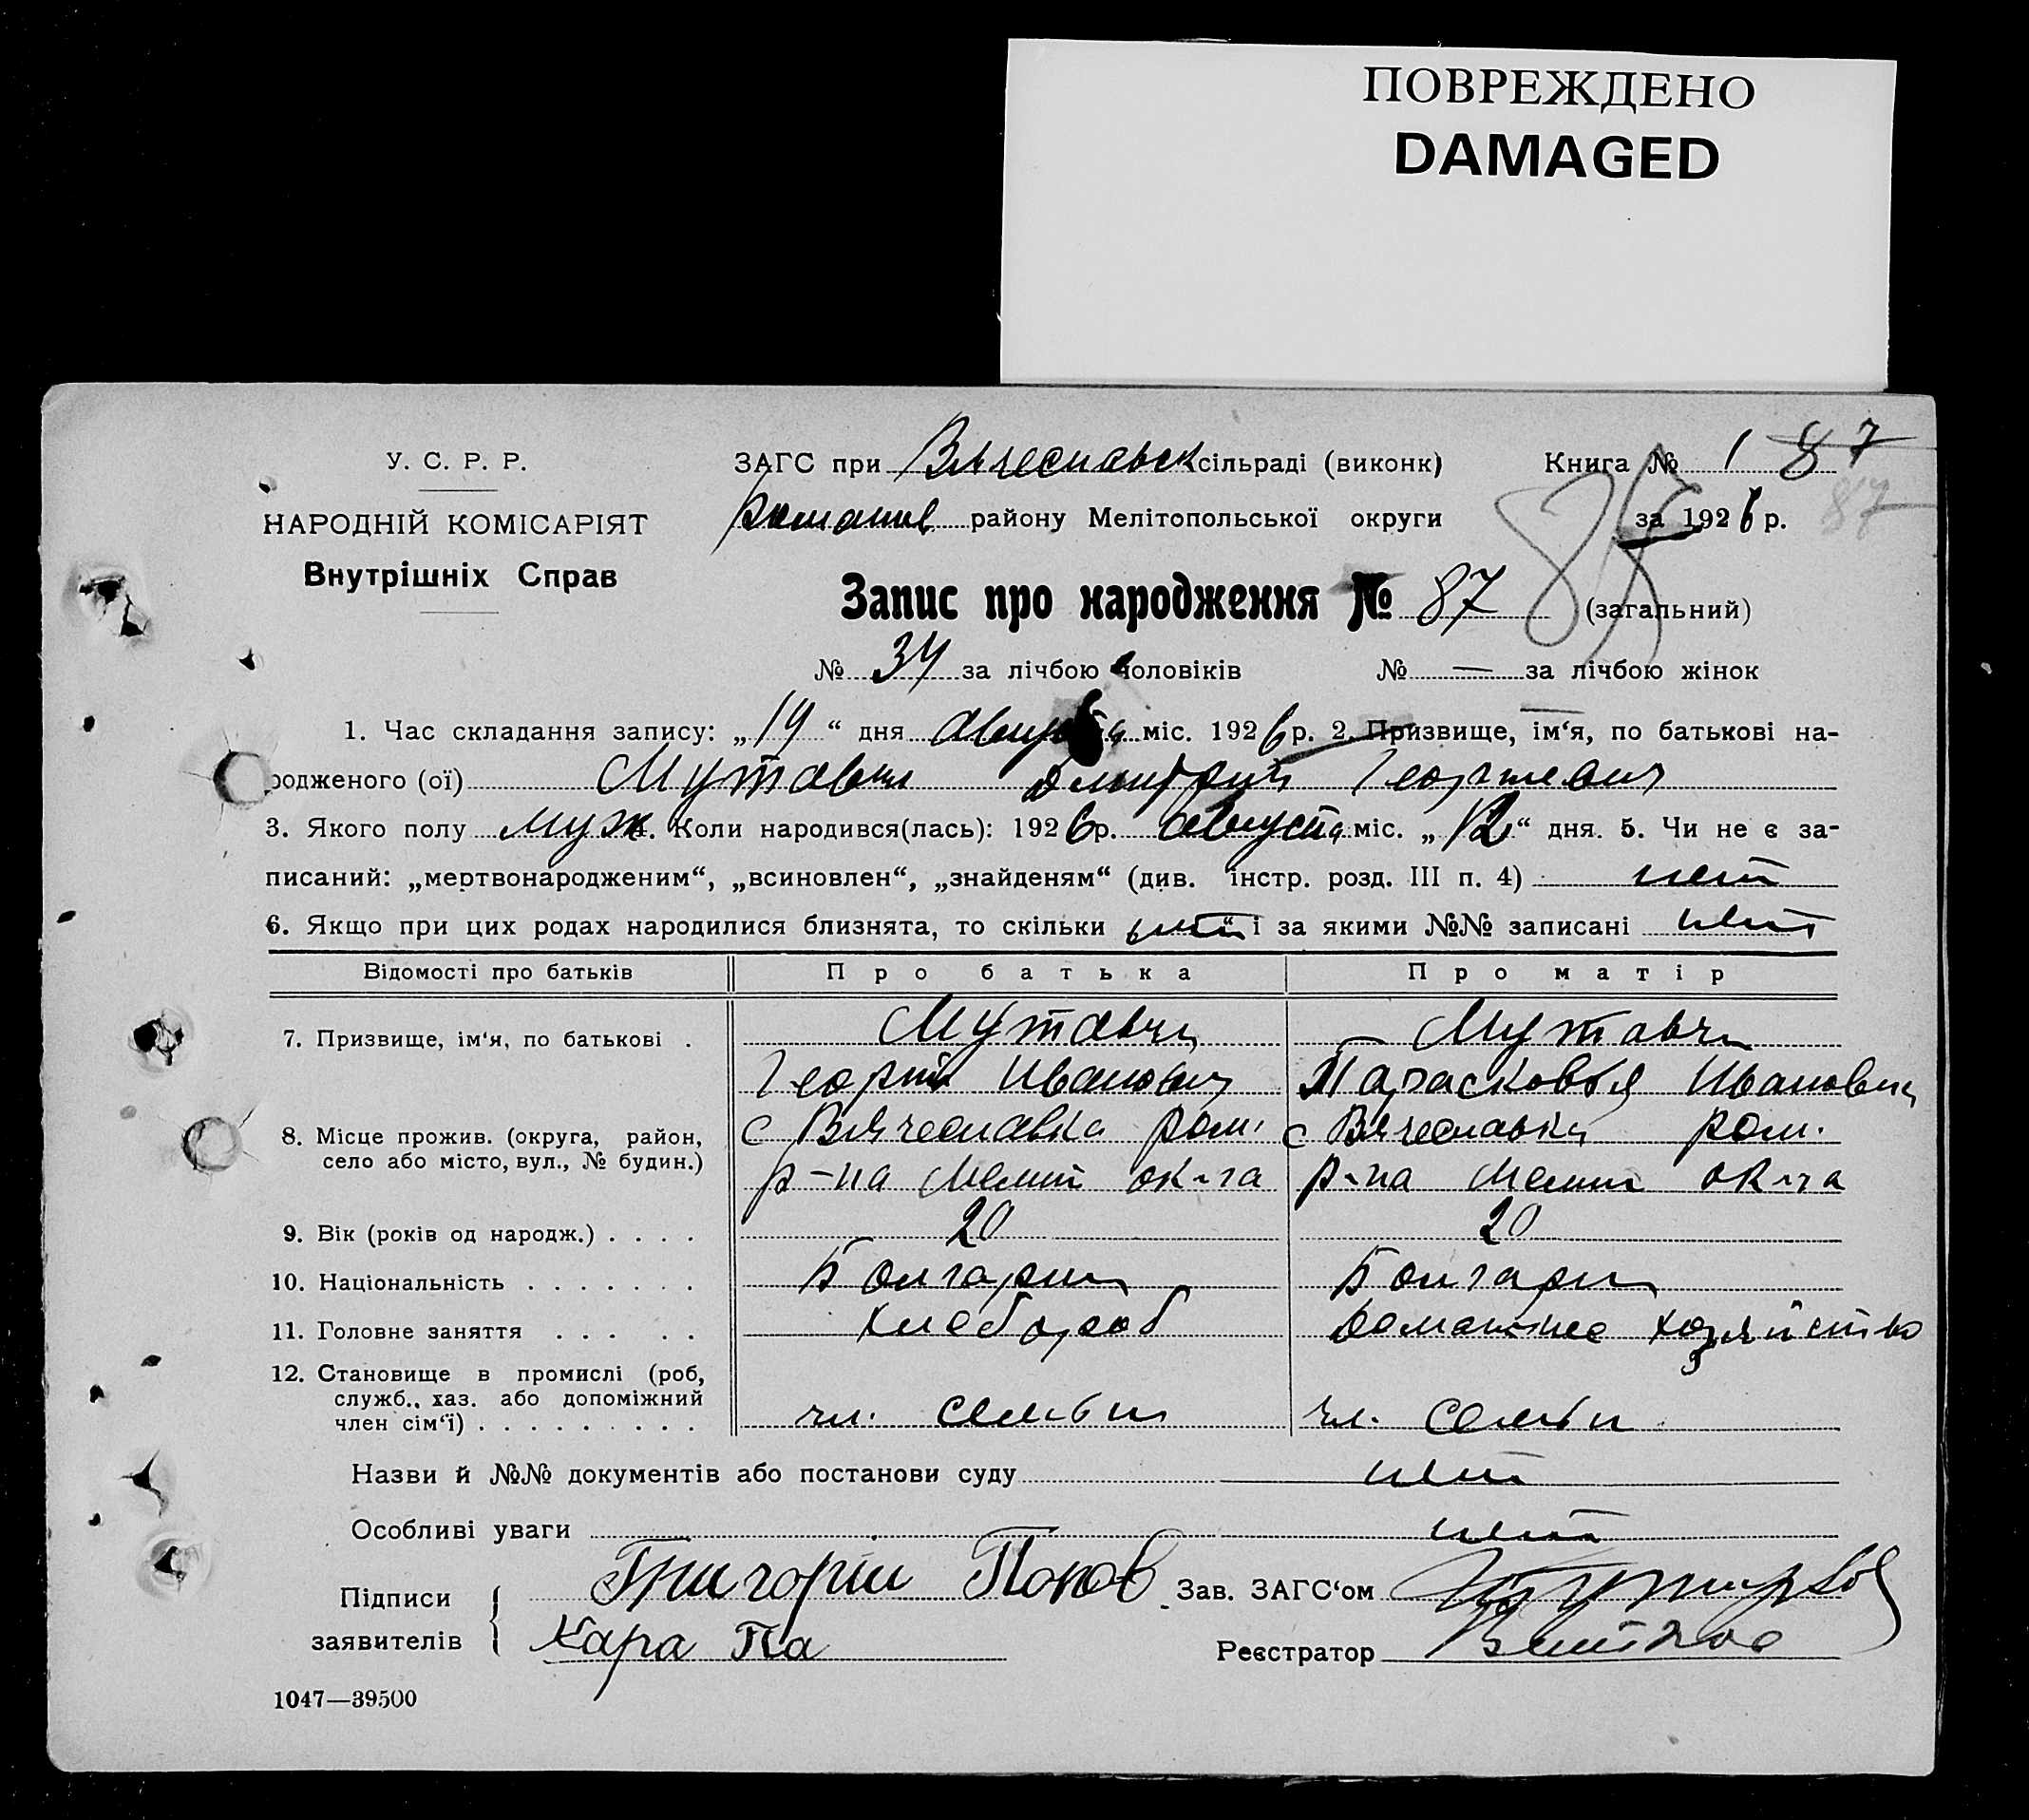 ПОВРЕЖДЕНО
DAMAGED
У. С. Р. Р.
НАРОДНІЙ КОМІСАРІЯТ
Внутрішніх Справ
ЗАГС при Вячеславск сільраді (виконк)
Романов району Мелітопольської округи
Книга № 1 87
за 1926 р. 87
Запис про народження № 87 (загальний)
№ 34 за лічбою чоловіків № — за лічбою жінок
1. Час складання запису: „19“ дня августа міс. 1926 р. 2. Призвище, ім‘я, по батькові на-
родженого (ої) Мутавчи Дмитрий Георгиевич
3. Якого полу муж 4. Коли народився(лась): 1926 р. августа міс. „12“ дня. 5. Чи не є за-
писаний: „мертвонародженим“, „всиновлен“, „знайденям“ (див. інстр. розд. III п. 4) нет
6. Якщо при цих родах народилися близнята, то скільки нет і за якими №№ записані нет
Відомості про батьків Про батька Про матір
7. Призвище, ім‘я, по батькові . Мутавчи Мутавчи
Георгий Иванович Парасковья Ивановна
8. Місце прожив. (округа, район, с Вячеславка ром. с Вячеславка ром.
село або місто, вул., № будин.) р-на Мелит ок-га р-на Мелит ок-га
9. Вік (років од народж.) . . . . 20 20
10. Національність . . . . . . . Болгарин Болгарин
11. Головне заняття . . . . . Хлебороб Домашнее хозяйство
12. Становище в промислі (роб,
служб., хаз. або допоміжний
член сім‘ї) . . . . . . . . . чл. семьи чл. семьи
Назви й №№ документів або постанови суду нет
Особливі уваги нет
Підписи Григорій Попов Зав. ЗАГС‘ом
заявителів Кара Па Реєстратор
1047—39500